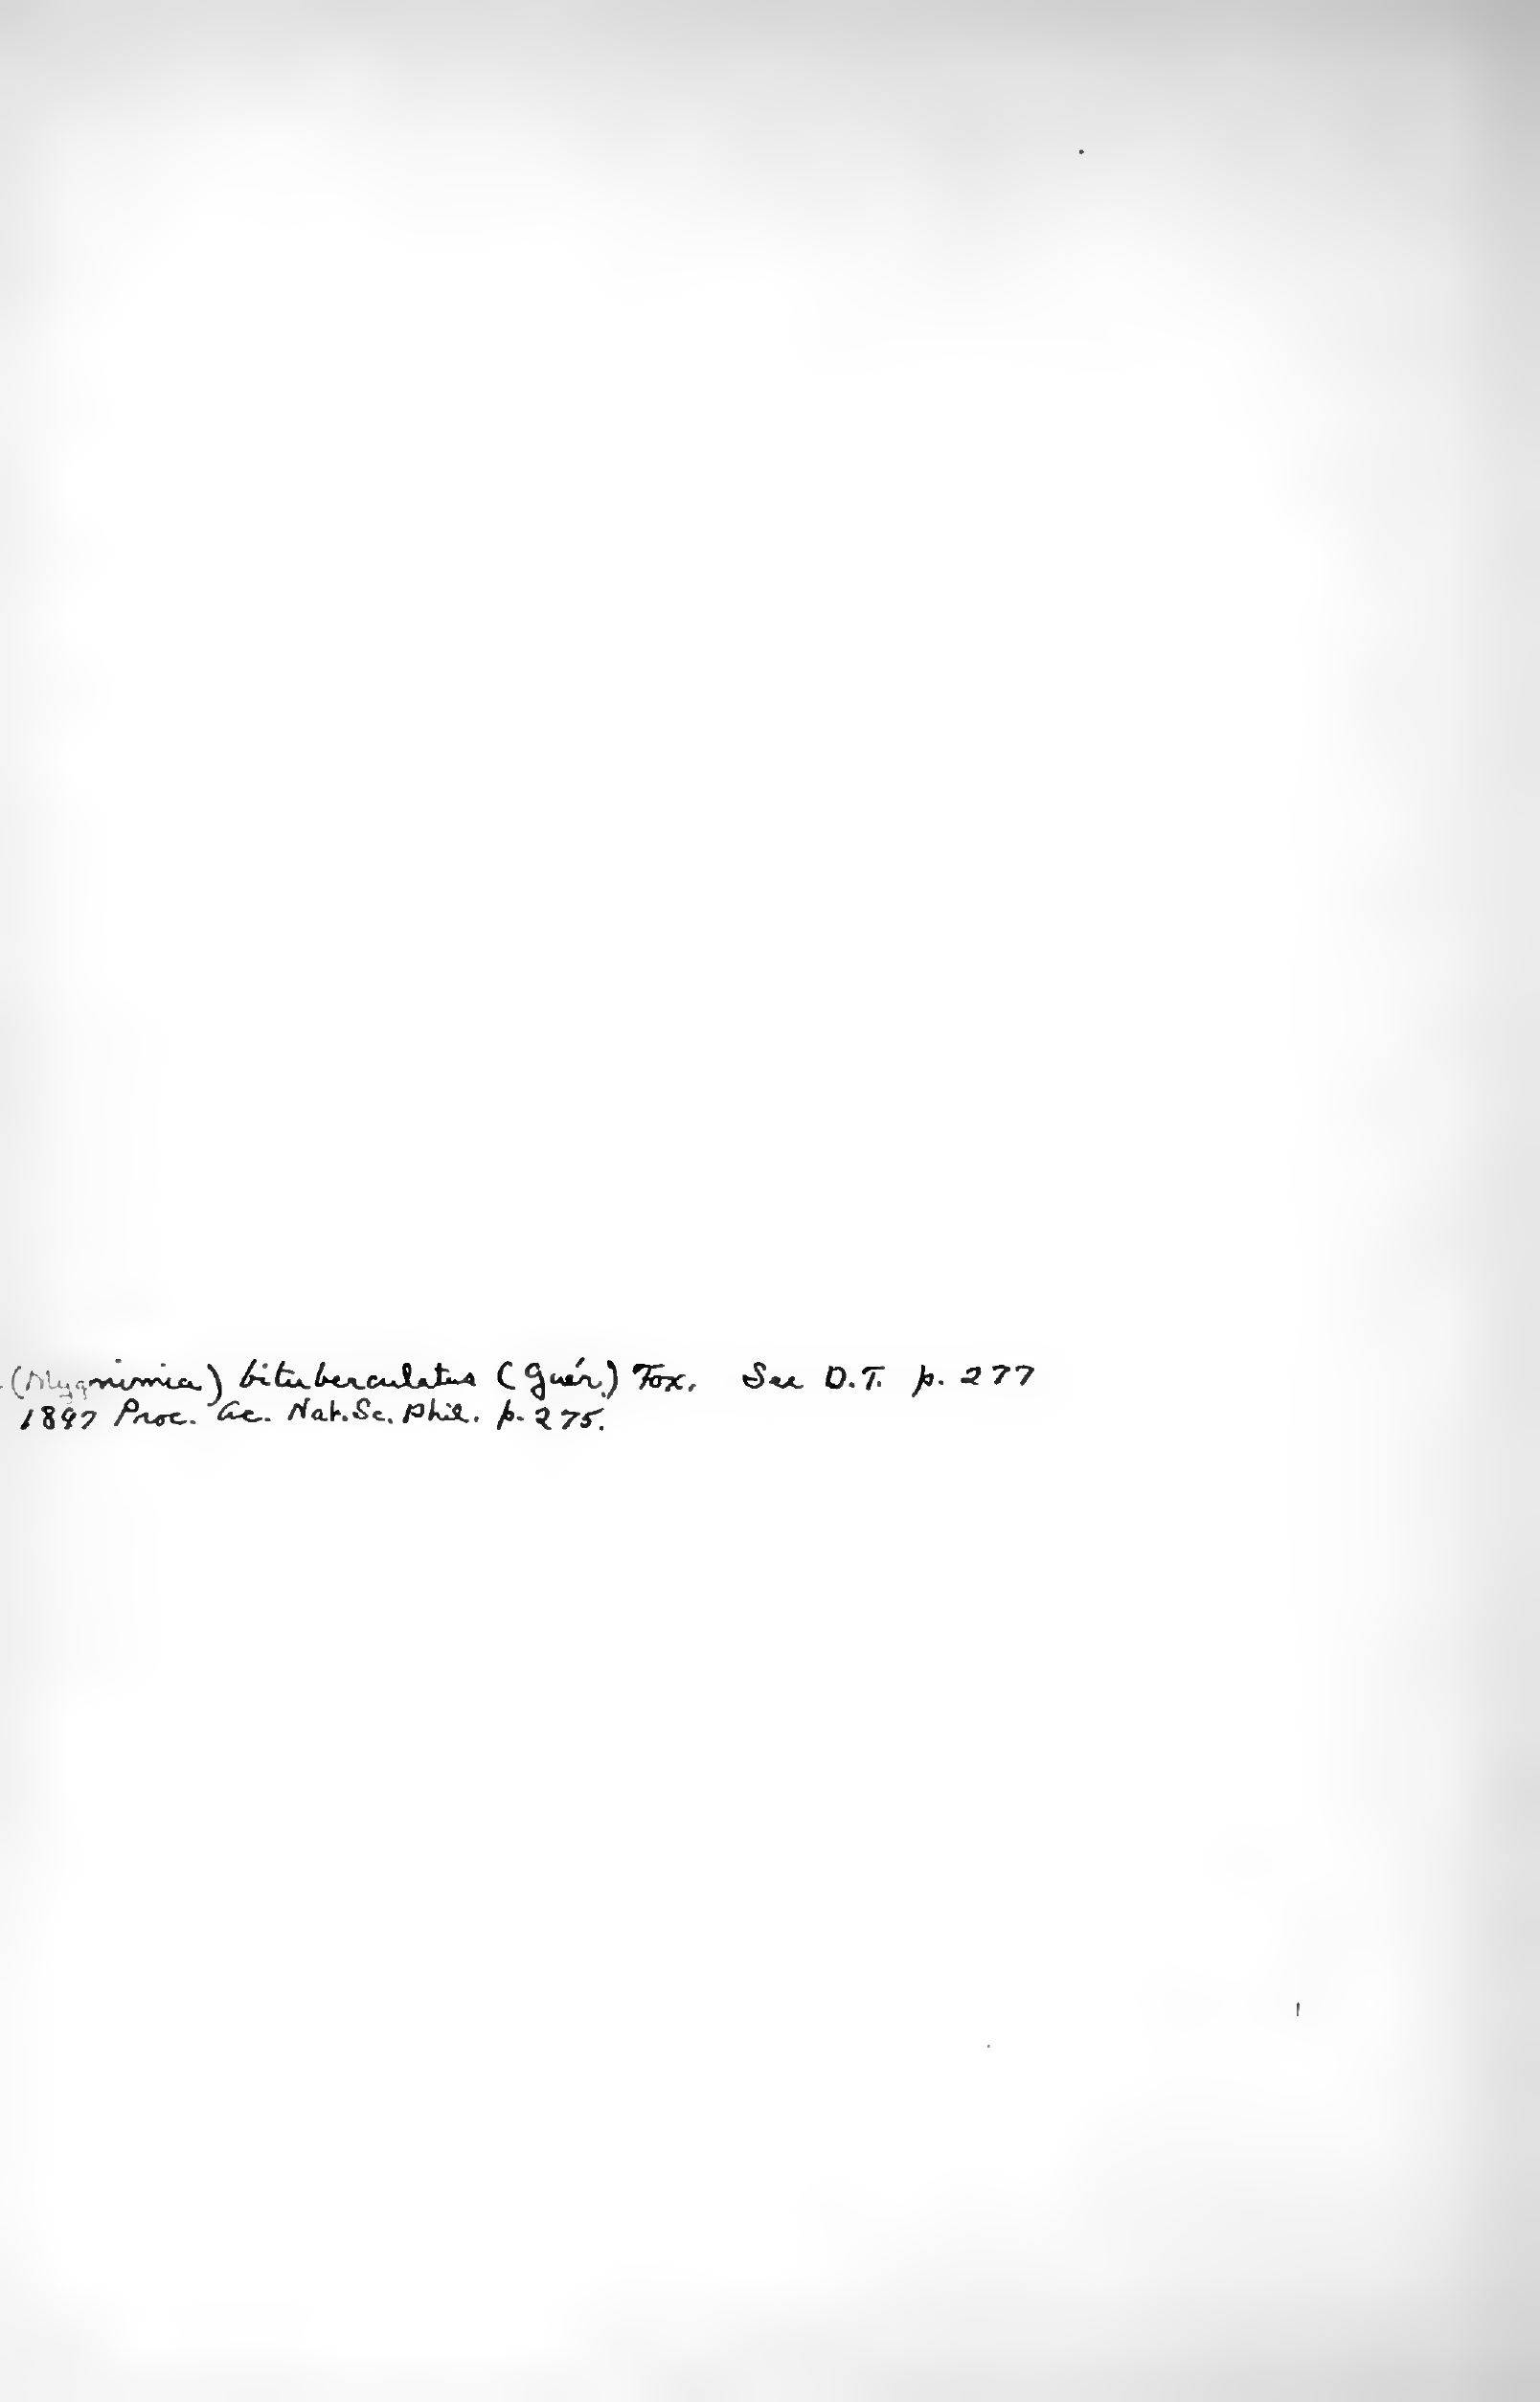 (Mygnimia) bituberculatus (Guér.) Fox. See D.T. p. 277
1897 Proc. Ac. Nat. Sc. Phil. p. 275.